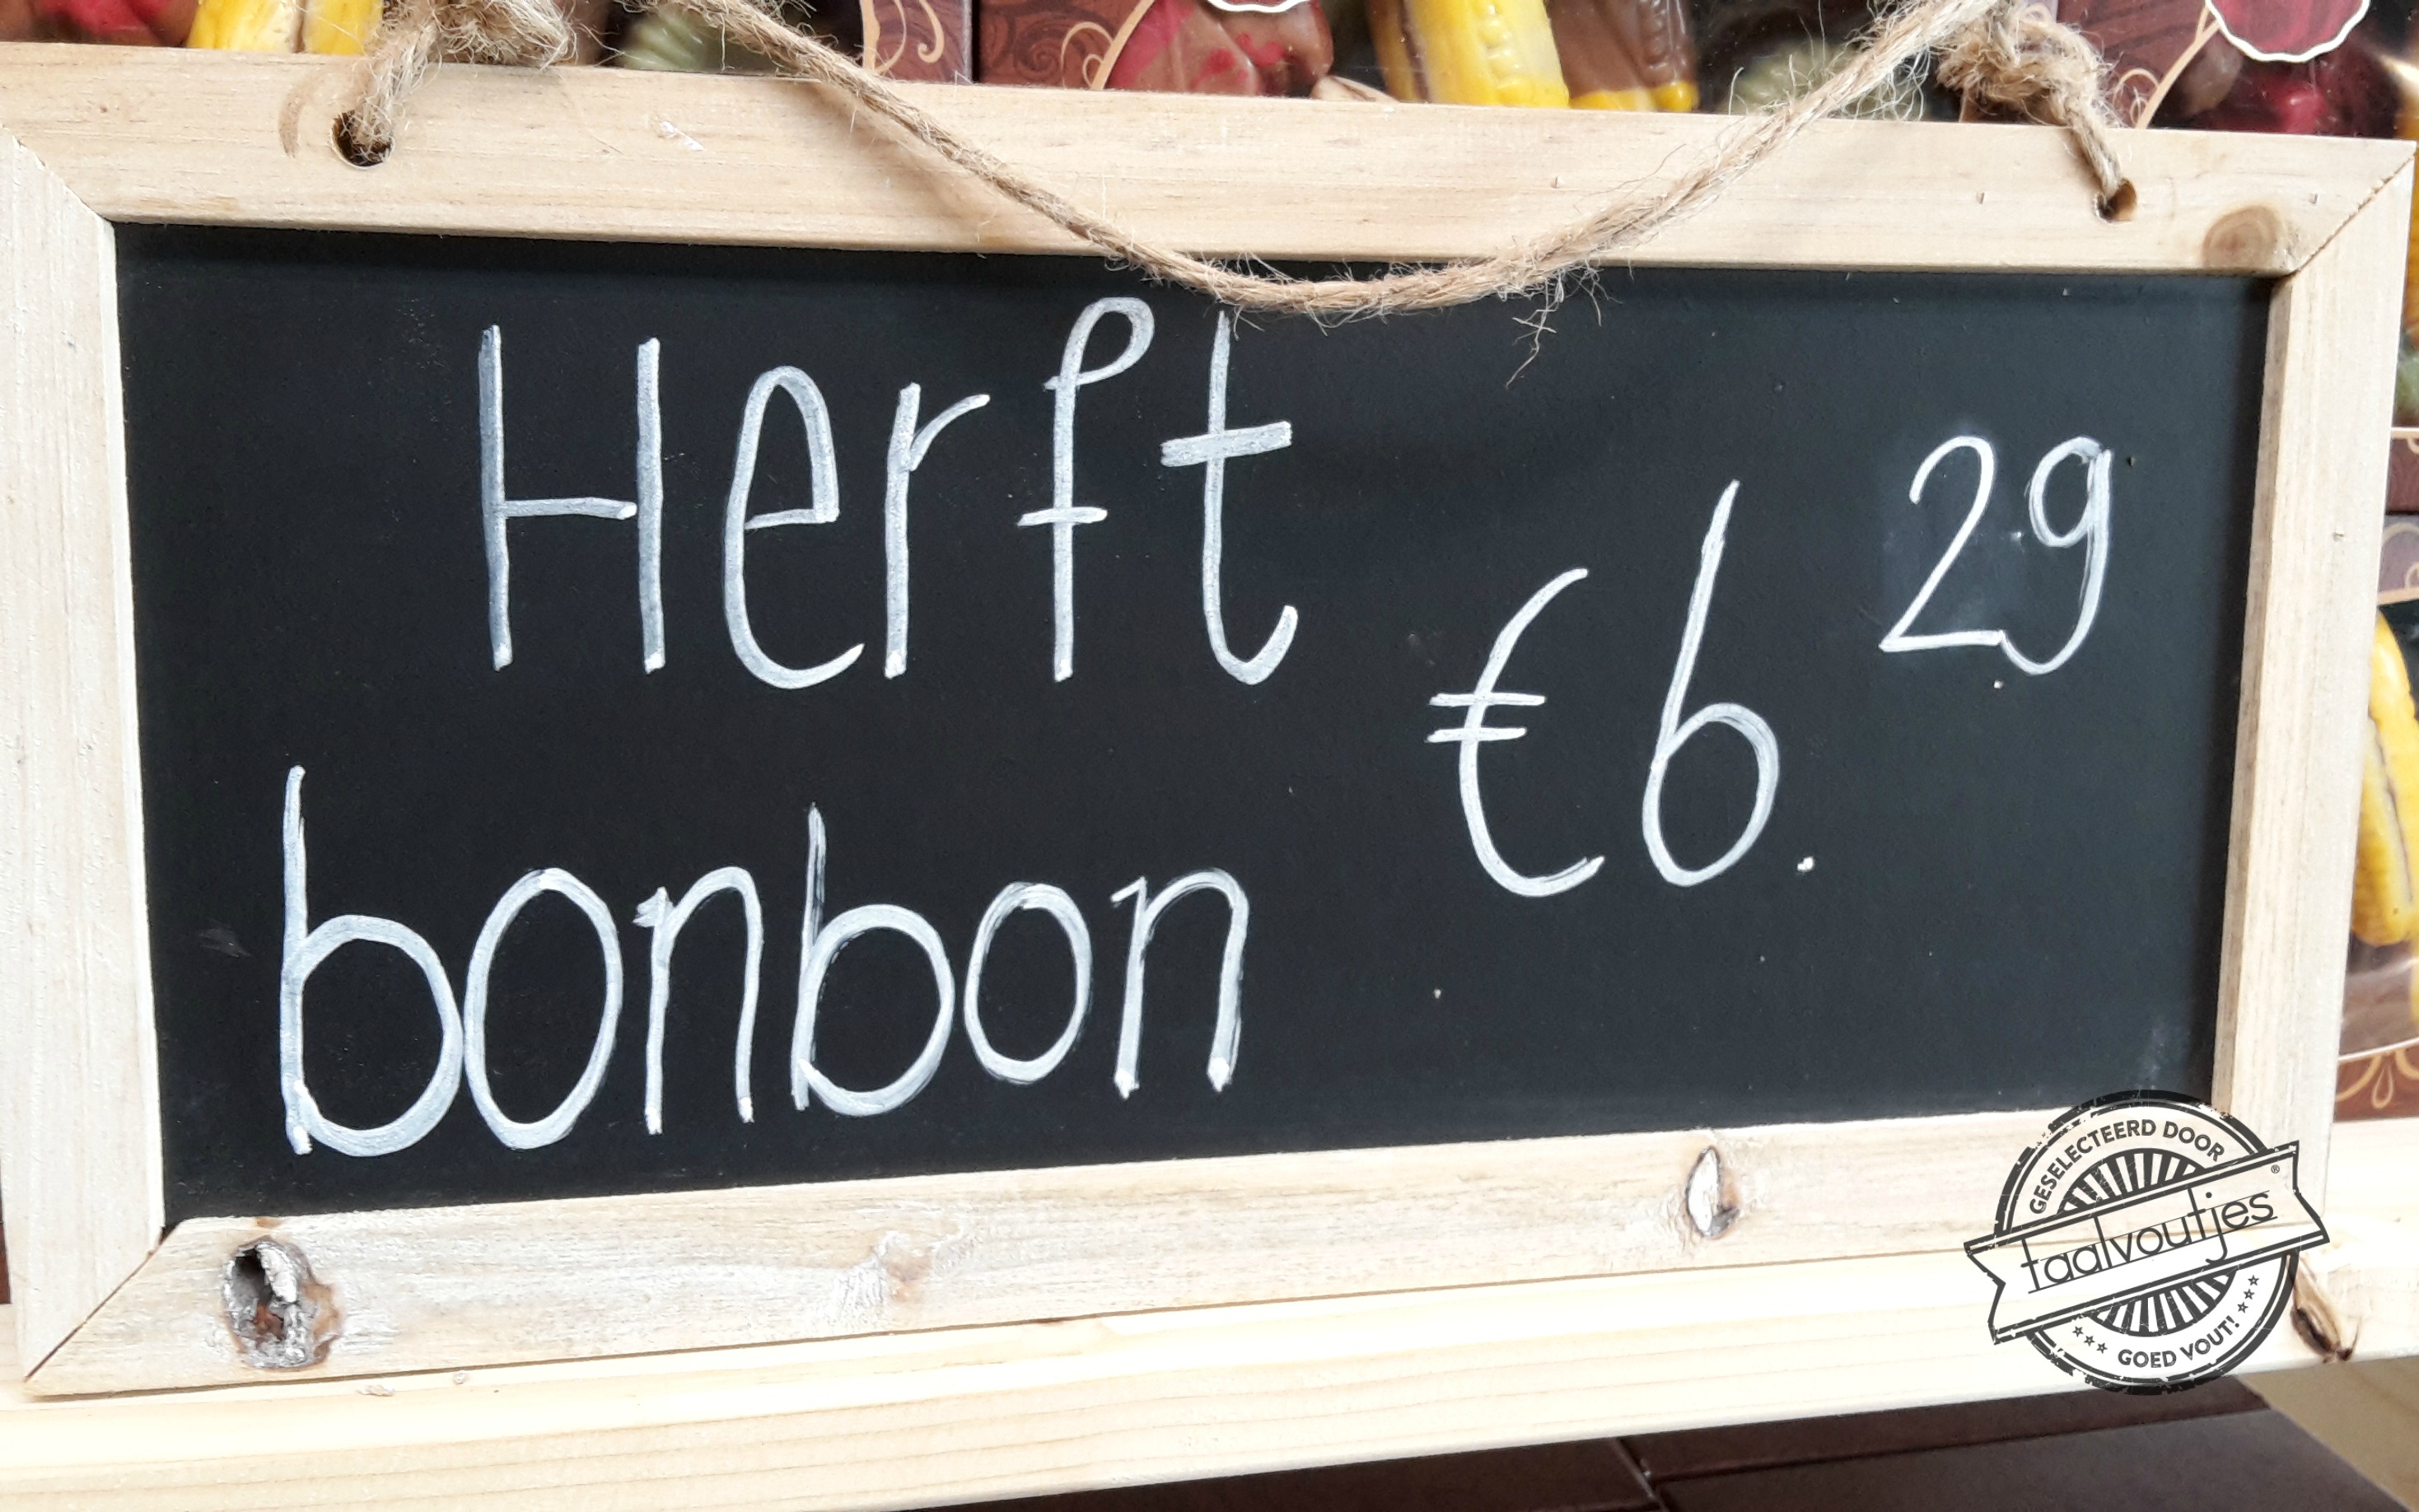 Herft
bonbon
€6.29
GESELECTEERD DOOR
taalvoutjes®
GOED VOUT!